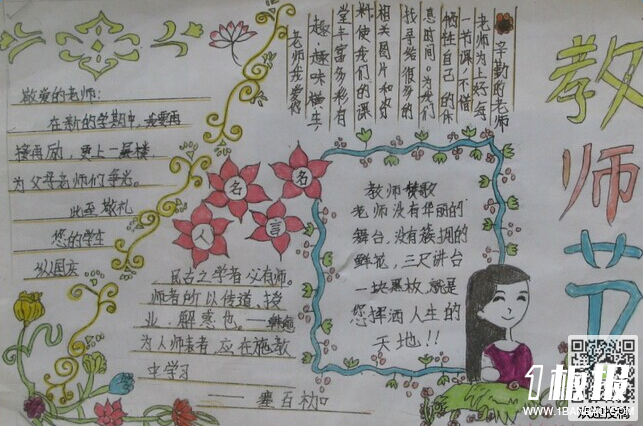 教师节
辛勤的老师
老师为上好每
一节课,不惜
牺牲自己的休
息时间。为我们
找寻给很多的
相关图片和资
料,使我们的课
堂丰富多彩有
趣,趣味横生
老师我爱你
敬爱的老师:
在新的学期中,我要再
接再励,更上一层楼
为父母老师们争光。
此至敬礼
您的学生
名人名言
古之学者必有师。
师者所以传道,授
业,解惑也。——韩愈
为人师表者,应在施教
中学习
教师赞歌
老师没有华丽的
舞台,没有簇拥的
鲜花,三尺讲台
一块黑板,就是
您挥洒人生的
天地!!
1板报
WWW.1BANBAO.COM
欢迎投稿